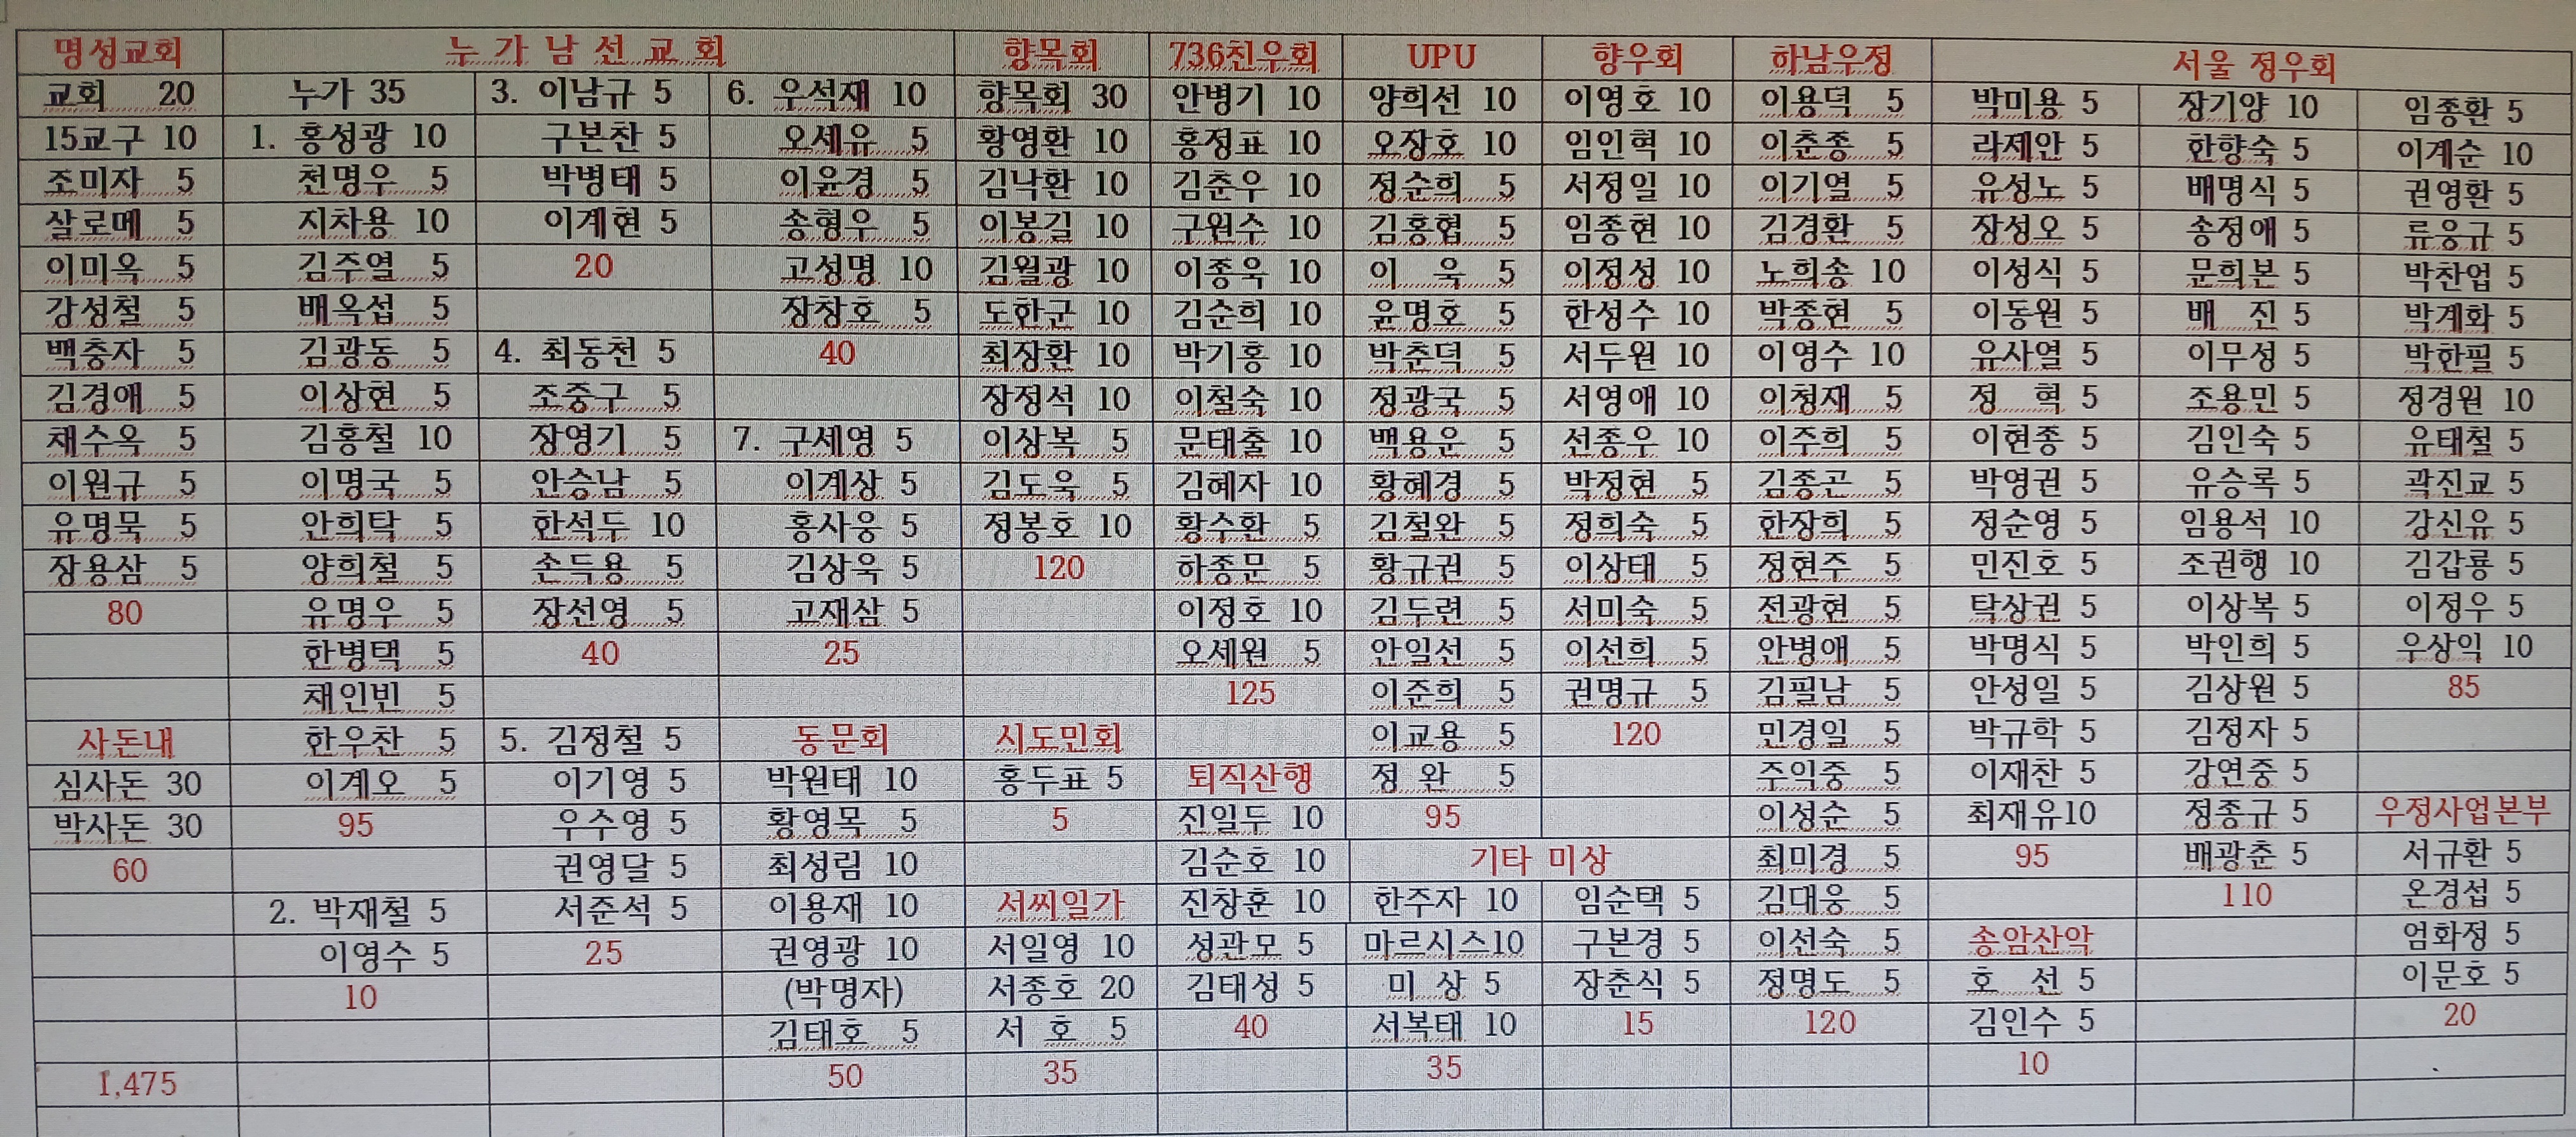 명성교회 누 가 남 선 교 회 향목회 736친우회 UPU 향우회 하남우정 서울 정우회
교회 20 누가 35 3. 이남규 5 6. 우석재 10 향목회 30 안병기 10 양희선 10 이영호 10 이용덕 5 박미용 5 장기양 10 임종환 5
15교구 10 1. 홍성광 10 구본찬 5 오세유 5 황영환 10 홍정표 10 오장호 10 임인혁 10 이춘종 5 라제안 5 한향숙 5 이계순 10
조미자 5 천명우 5 박병태 5 이윤경 5 김낙환 10 김춘우 10 정순희 5 서정일 10 이기열 5 유성노 5 배명식 5 권영환 5
살로메 5 지차용 10 이계현 5 송형우 5 이봉길 10 구원수 10 김홍협 5 임종현 10 김경환 5 장성오 5 송정애 5 류웅규 5
이미옥 5 김주열 5 20 고성명 10 김월광 10 이종욱 10 이 욱 5 이정성 10 노희송 10 이성식 5 문희본 5 박찬업 5
강성철 5 배옥섭 5 장창호 5 도한군 10 김순희 10 윤명호 5 한성수 10 박종현 5 이동원 5 배 진 5 박계화 5
백충자 5 김광동 5 4. 최동천 5 40 최장환 10 박기홍 10 박춘덕 5 서두원 10 이영수 10 유사열 5 이무성 5 박한필 5
김경애 5 이상현 5 조중구 5 장정석 10 이철숙 10 정광국 5 서영애 10 이청재 5 정 혁 5 조용민 5 정경원 10
채수옥 5 김홍철 10 장영기 5 7. 구세영 5 이상복 5 문태출 10 백용운 5 선종우 10 이주희 5 이현종 5 김인숙 5 유태철 5
이원규 5 이명국 5 안승남 5 이계상 5 김도욱 5 김혜자 10 황혜경 5 박정현 5 김종곤 5 박영권 5 유승록 5 곽진교 5
유명묵 5 안희탁 5 한석두 10 홍사웅 5 정봉호 10 황수환 5 김철완 5 정희숙 5 한장희 5 정순영 5 임용석 10 강신유 5
장용삼 5 양희철 5 손득용 5 김상욱 5 120 하종문 5 황규권 5 이상태 5 정현주 5 민진호 5 조권행 10 김갑룡 5
80 유명우 5 장선영 5 고재삼 5 이정호 10 김두련 5 서미숙 5 전광현 5 탁상권 5 이상복 5 이정우 5
한병택 5 40 25 오세원 5 안일선 5 이선희 5 안병애 5 박명식 5 박인희 5 우상익 10
채인빈 5 125 이준희 5 권명규 5 김필남 5 안성일 5 김상원 5 85
사돈내 한우찬 5 5. 김정철 5 동문회 시도민회 이교용 5 120 민경일 5 박규학 5 김정자 5
심사돈 30 이계오 5 이기영 5 박원태 10 홍두표 5 퇴직산행 정 완 5 주익중 5 이재찬 5 강연중 5
박사돈 30 95 우수영 5 황영목 5 5 진일두 10 95 이성순 5 최재유10 정종규 5 우정사업본부
60 권영달 5 최성림 10 김순호 10 기타 미상 최미경 5 95 배광춘 5 서규환 5
2. 박재철 5 서준석 5 이용재 10 서씨일가 진창훈 10 한주자 10 임순택 5 김대웅 5 110 온경섭 5
이영수 5 25 권영광 10 서일영 10 성관모 5 마르시스10 구본경 5 이선숙 5 송암산악 엄화정 5
10 (박명자) 서종호 20 김태성 5 미 상 5 장춘식 5 정명도 5 호 선 5 이문호 5
김태호 5 서 호 5 40 서복태 10 15 120 김인수 5 20
1,475 50 35 35 10